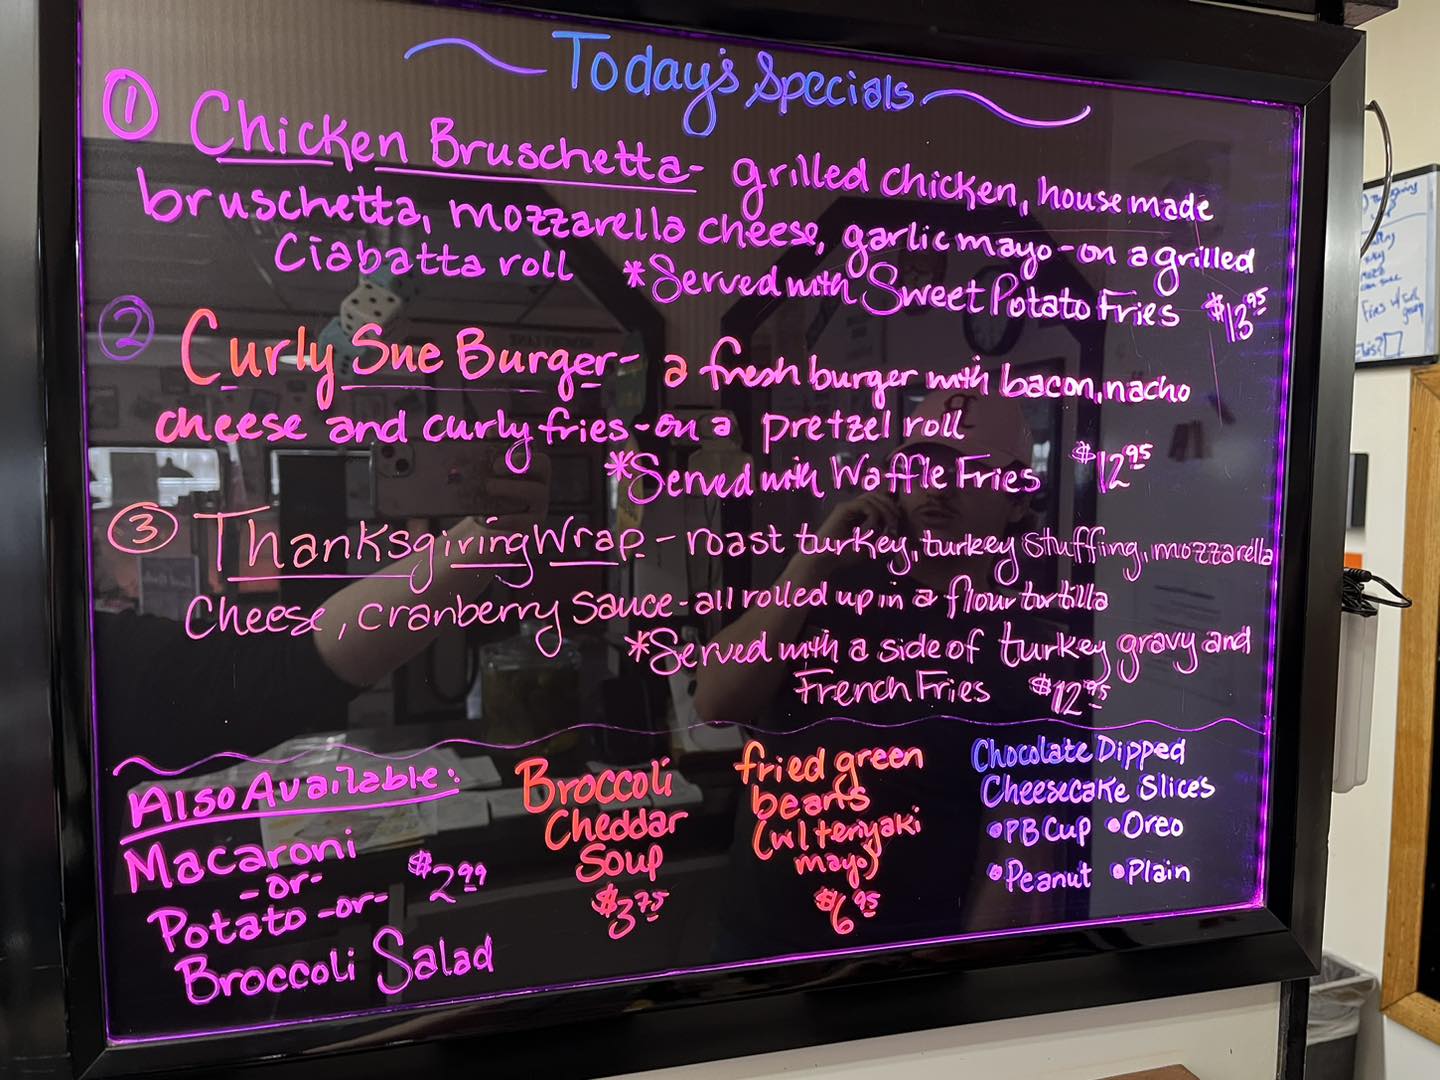 Today's Specials
① Chicken Bruschetta- grilled chicken, house made
bruschetta, mozzarella cheese, garlic mayo-on a grilled
Ciabatta roll *Served with Sweet Potato Fries $13.95
② Curly Sue Burger- a fresh burger with bacon, nacho
cheese and curly fries-on a pretzel roll
*Served with Waffle Fries $12.95
③ Thanksgiving Wrap - roast turkey, turkey stuffing, mozzarella
Cheese, cranberry sauce-all rolled up in a flour tortilla
*Served with a side of turkey gravy and
French Fries $12.95
Also Available:
Macaroni
-or-
Potato -or- $2.99
Broccoli Salad
Broccoli
Cheddar
Soup
$3.75
fried green
beans
(w/teriyaki
mayo)
$6.95
Chocolate Dipped
Cheesecake Slices
•PB Cup •Oreo
•Peanut •Plain